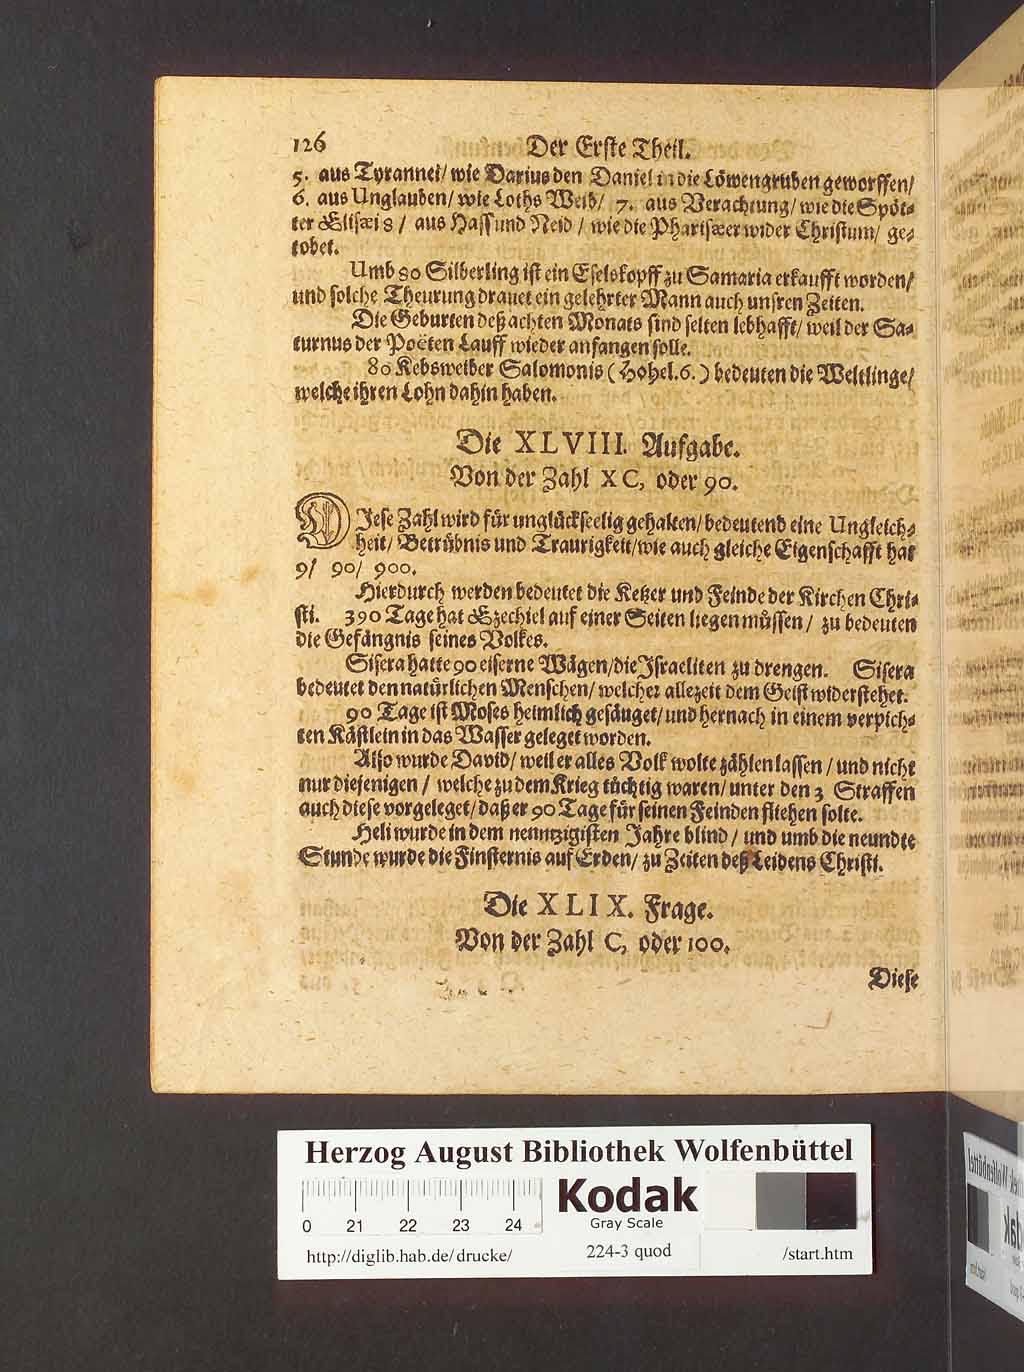 126 Der Erste Theil.
5. aus Tyrannei/ wie Darius den Daniel in die Löwengruben geworffen/
6. aus Unglauben/ wie Loths Weib/ 7. aus Verachtung/ wie die Spöt-
ter Elisæi 8/ aus Hass und Neid/ wie die Pharisæer wider Christum/ ge-
tobet.
Umb 80 Silberling ist ein Eselskopff zu Samaria erkaufft worden/
und solche Theurung drauet ein gelehrter Mann auch unsren Zeiten.
Die Geburten deß achten Monats sind selten lebhafft/ weil der Sa-
turnus der Poëten Lauff wieder anfangen solle.
80 Kebsweiber Salomonis (Hohel. 6.) bedeuten die Weltlinge/
welche ihren Lohn dahin haben.
Die XLVIII. Aufgabe.
Von der Zahl XC, oder 90.
DIese Zahl wird für unglückseelig gehalten/ bedeutend eine Ungleich-
heit/ Betrübnis und Traurigkeit/ wie auch gleiche Eigenschafft hat
9/ 90/ 900.
Hierdurch werden bedeutet die Ketzer und Feinde der Kirchen Chri-
sti. 390 Tage hat Ezechiel auf einer Seiten liegen müssen/ zu bedeuten
die Gefängnis seines Volkes.
Sisera hatte 90 eiserne Wägen/ die Israeliten zu drengen. Sisera
bedeutet den natürlichen Menschen/ welcher allezeit dem Geist widerstehet.
90 Tage ist Moses heimlich gesäuget/ und hernach in einem verpich-
ten Kästlein in das Wasser geleget worden.
Also wurde David/ weil er alles Volk wolte zählen lassen/ und nicht
nur diejenigen/ welche zu dem Krieg tüchtig waren/ unter den 3 Straffen
auch diese vorgeleget/ daß er 90 Tage für seinen Feinden fliehen solte.
Heli wurde in dem nenntzigisten Jahre blind/ und umb die neundte
Stunde wurde die Finsternis auf Erden/ zu Zeiten deß Leidens Christi.
Die XLIX. Frage.
Von der Zahl C, oder 100.
Diese
Herzog August Bibliothek Wolfenbüttel
0 21 22 23 24
Kodak
Gray Scale
http://diglib.hab.de/drucke/ 224-3 quod /start.htm